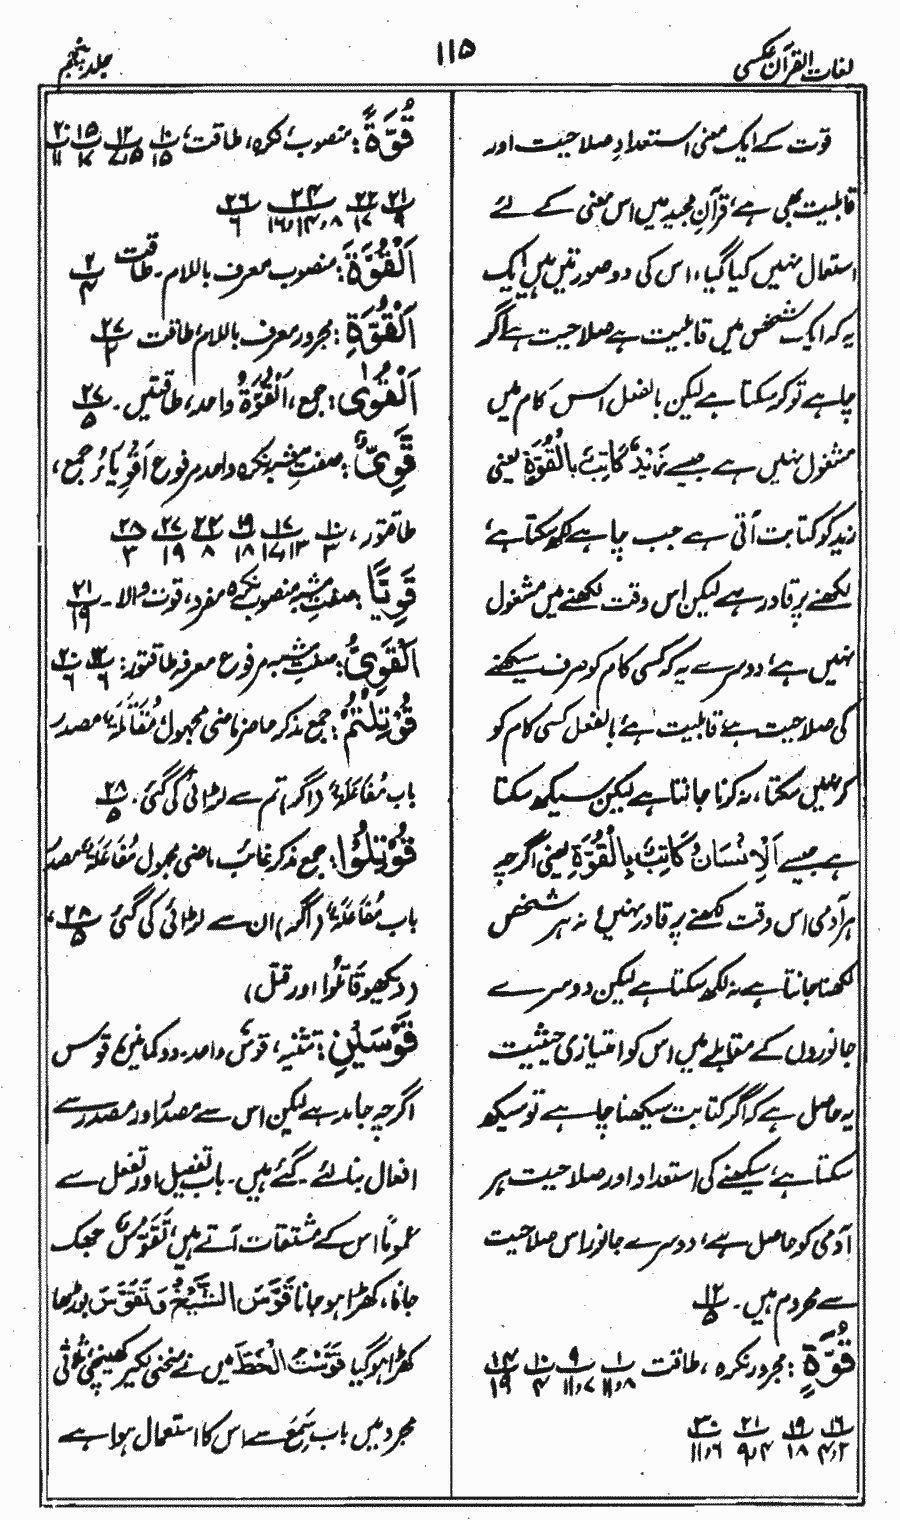 لغات القرآن عکسی
۱۱۵
جلد پنجم
قوت کے ایک معنی استعدادِ صلاحیت اور
قابلیت بھی ہے، قرآنِ مجید میں اس معنی کے لئے
استعمال نہیں کیا گیا، اس کی دو صورتیں ہیں ایک
یہ کہ ایک شخص میں قابلیت ہے صلاحیت ہے اگر
چاہے تو کر سکتا ہے لیکن بالفعل اس کام میں
مشغول نہیں ہے جیسے زَیْدٌ کَاتِبٌ بِالْقُوَّۃِ یعنی
زید کو کتابت آتی ہے جب چاہے لکھ سکتا ہے،
لکھنے پر قادر ہے لیکن اس وقت لکھنے میں مشغول
نہیں ہے، دوسرے یہ کہ کسی کام کو صرف سیکھنے
کی صلاحیت ہے، قابلیت ہے، بالفعل کسی کام کو
کر نہیں سکتا، نہ کرنا جانتا ہے لیکن سیکھ سکتا
ہے جیسے اَلْاِنْسَانُ کَاتِبٌ بِالْقُوَّۃِ یعنی اگرچہ
ہر آدمی اس وقت لکھنے پر قادر نہیں، نہ ہر شخص
لکھنا جانتا ہے، نہ لکھ سکتا ہے لیکن دوسرے
جانوروں کے مقابلے میں اس کو امتیازی حیثیت
یہ حاصل ہے کہ اگر کتابت سیکھنا چاہے تو سیکھ
سکتا ہے، سیکھنے کی استعداد اور صلاحیت ہر
آدمی کو حاصل ہے، دوسرے جانور اس صلاحیت
سے محروم ہیں۔ ۱۲/۵
قُوَّۃٍ: مجرور نکرہ، طاقت ۱/۱۱،۸ ۹/۱۱،۷ ۱۰/۴ ۱۴/۱۹
۱۶/۴،۲ ۱۹/۱۸ ۲۱/۹،۴ ۳۰/۱۱،۶
قُوَّۃً: منصوب، نکرہ، طاقت، ۱۰/۱۵ ۱۲/۷،۵ ۱۵/۱۷ ۲۰/۱۱
۲۱/۹ ۲۲/۱۷ ۲۴/۱۶،۱۴،۸ ۲۶/۶
اَلْقُوَّۃَ: منصوب معرف باللام۔ طاقت ۲/۴
اَلْقُوَّۃِ: مجرور معرف باللام، طاقت ۲۷/۲
اَلْقُوٰی: جمع، اَلْقُوَّۃُ واحد، طاقتیں۔ ۲۷/۵
قَوِیٌّ: صفت مشبہ نکرہ واحد مرفوع اَقْوِیَاءُ جمع،
طاقتور، ۱۰/۳ ۱۷/۱۷،۱۳ ۱۹/۱۸ ۲۴/۸ ۲۷/۱۹ ۲۸/۳
قَوِیًّا: صفتِ مشبہ منصوب نکرہ مفرد، قوت والا۔ ۲۱/۱۹
اَلْقَوِیُّ: صفت مشبہ مرفوع معرفہ طاقتور: ۱۲/۶ ۲۰/۶
قُوْتِلْتُمْ: جمع مذکر حاضر ماضی مجہول، مُقَاتَلَۃٌ مصدر
باب مُفَاعَلَۃٌ (اگر) تم سے لڑائی کی گئی۔ ۲۸/۵
قُوْتِلُوْا: جمع مذکر غائب، ماضی مجہول مُقَاتَلَۃٌ مصدر
باب مُفَاعَلَۃٌ (اگر) ان سے لڑائی کی گئی ۲۸/۵،
(دیکھو قَاتَلُوا اور قتل)
قَوْسَیْنِ: تثنیہ، قَوْسٌ واحد۔ دو کمانیں، قوس
اگرچہ جامد ہے لیکن اس سے مصدر اور مصدر سے
افعال بنا لئے گئے ہیں۔ باب تفعیل اور تفعل سے
عمومًا اس کے مشتقات آتے ہیں، تَقَوُّسٌ جھک
جانا، کھڑا ہو جانا قَوَّسَ الشَّیْخُ وَ تَقَوَّسَ بوڑھا
کھڑا ہو گیا قَوَّسْتُ الْخَطَّ میں نے منحنی لکیر کھینچی، ثلاثی
مجرد میں باب سَمِعَ سے اس کا استعمال ہوا ہے